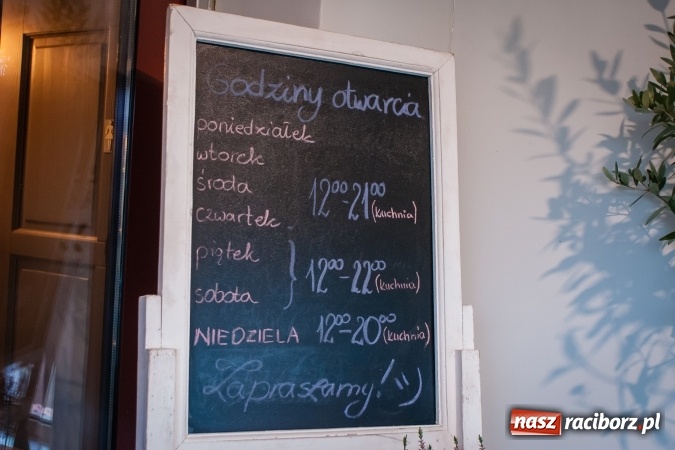 Godziny otwarcia
poniedziałek
wtorek
środa 12⁰⁰-21⁰⁰ (kuchnia)
czwartek
piątek
12⁰⁰-22⁰⁰ (kuchnia)
sobota
NIEDZIELA 12⁰⁰-20⁰⁰ (kuchnia)
Zapraszamy! :)
nasz raciborz.pl